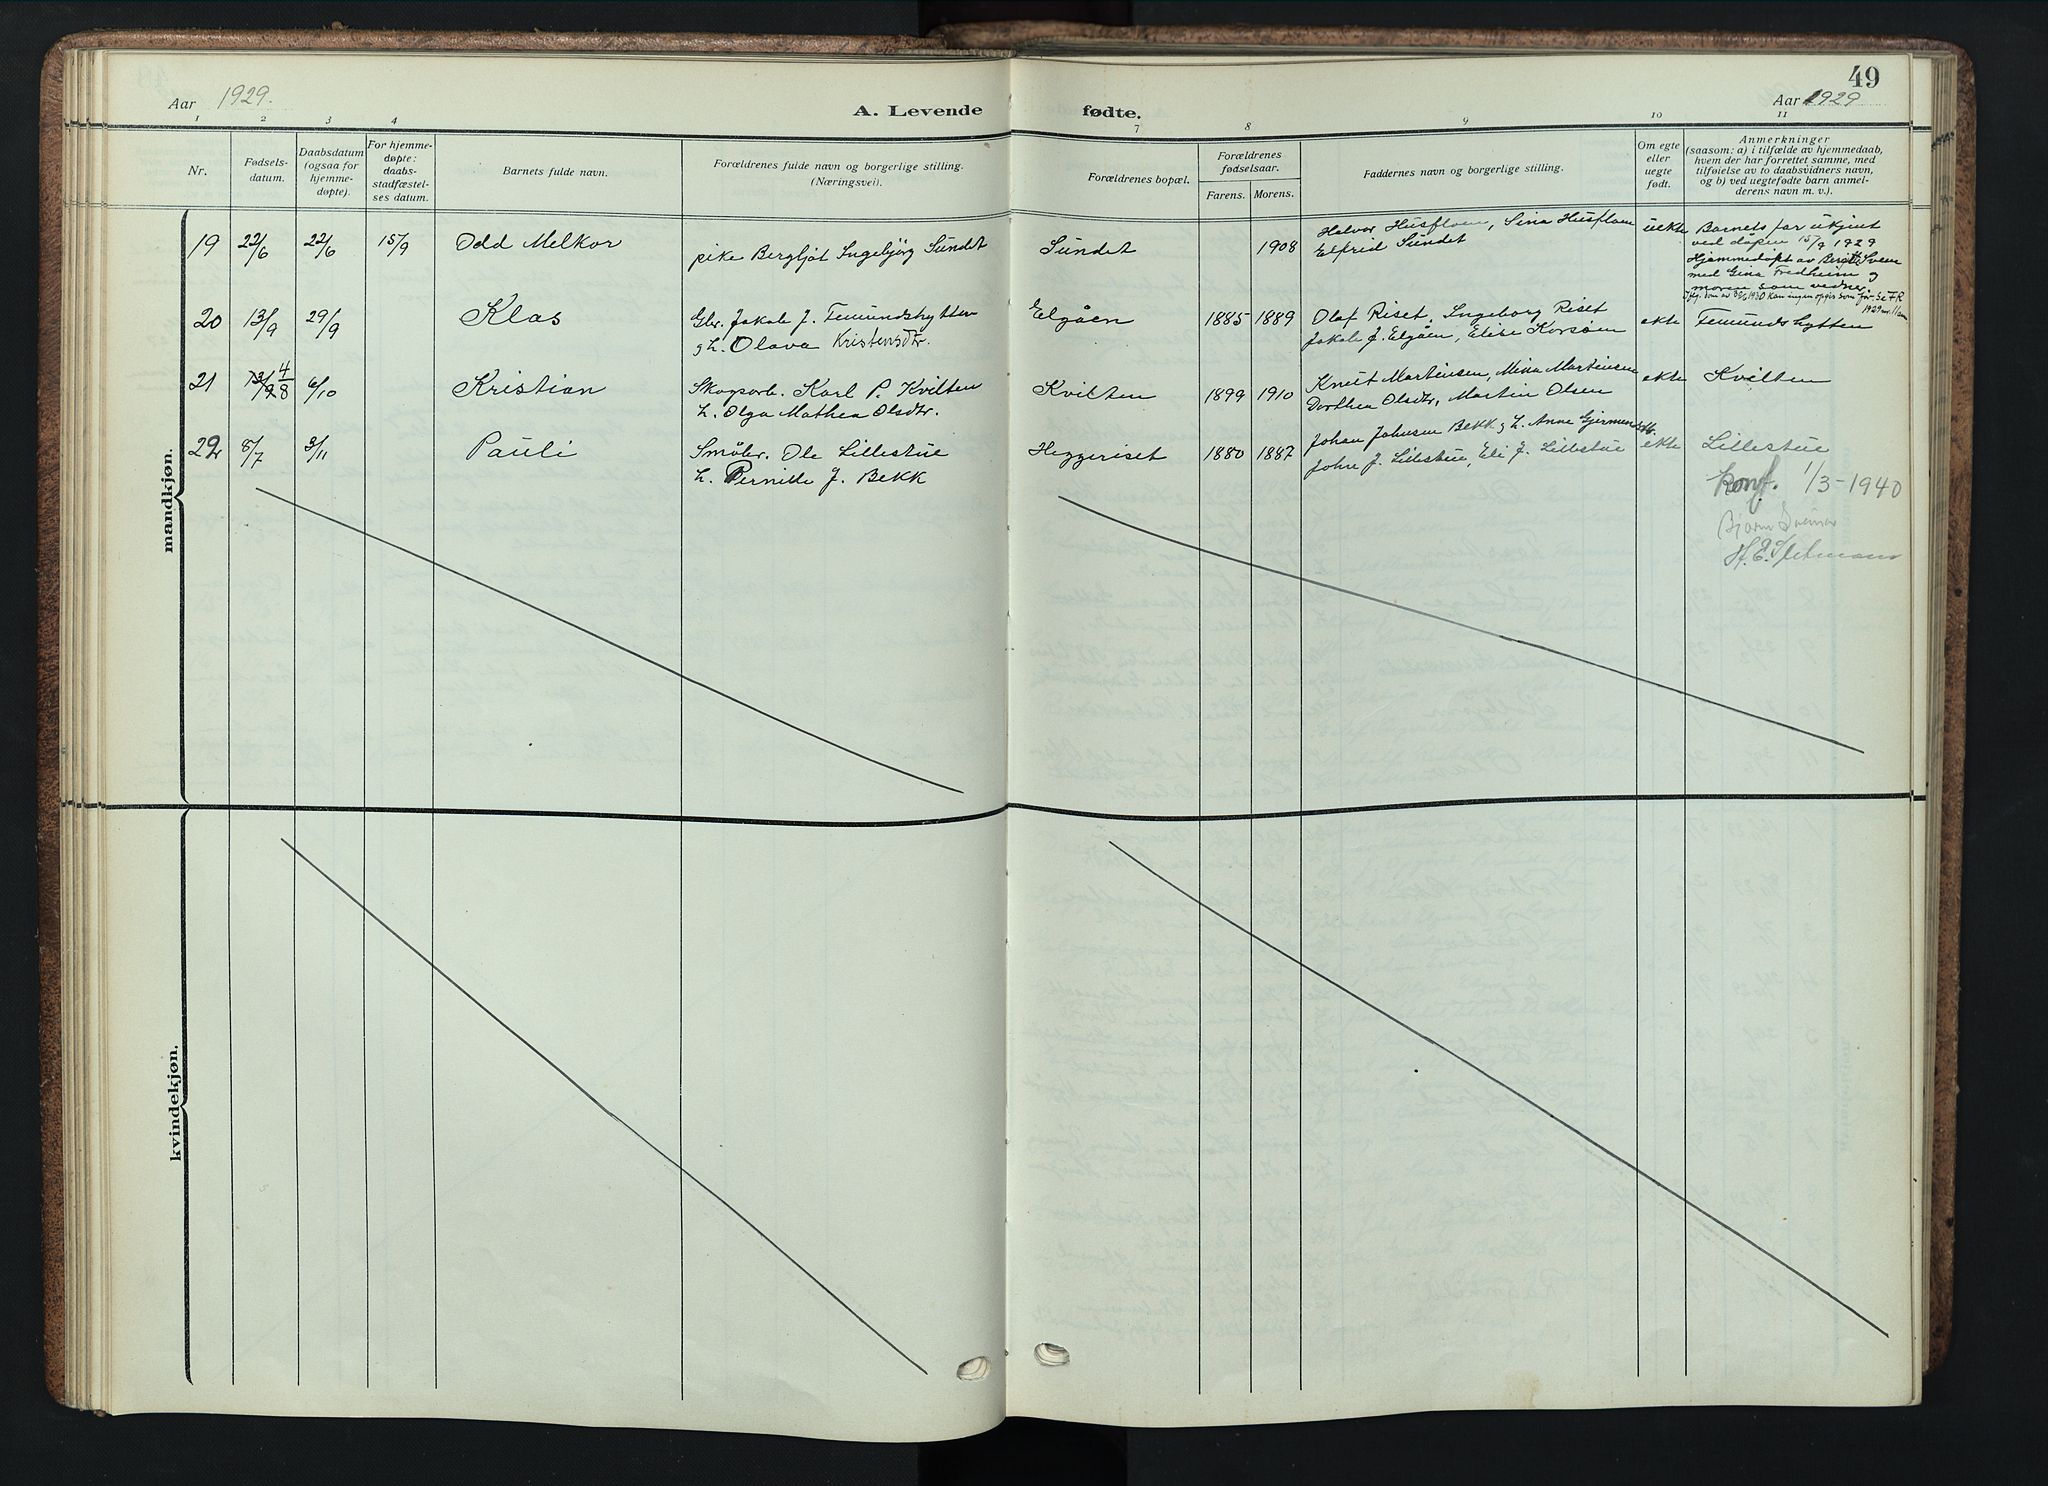 49
Aar 1929.
A. Levende fødte.
Aar 1929
1 2 3 4 7 8 9 10 11
Nr.
Fødsels-
datum.
Daabsdatum
(ogsaa for
hjemme-
døpte).
For hjemme-
døpte:
daabs-
stadfæstel-
ses datum.
Barnets fulde navn.
Forældrenes fulde navn og borgerlige stilling.
(Næringsvei).
Forældrenes bopæl.
Forældrenes
fødselsaar.
Farens. Morens.
Faddernes navn og borgerlige stilling.
Om egte
eller
uegte
født.
Anmerkninger
(saasom: a) i tilfælde av hjemmedaab,
hvem der har forrettet samme, med
tilføielse av to daabsvidners navn,
og b) ved uegtefødte barn anmel-
derens navn m. v.).
mandkjøn.
19 22/6 22/6 15/9 Odd Melkor
pike Bergljot Ingebjørg Sundet
Sundet 1908
Halvor Husfloen, Sina Husfloen
Elfrid Sundet
uekte
Barnets far ukjent
ved dåpen 15/9 1929
Hjemmedøpt av Berit Sveen
med Gina Fredheim og
moren som vedner
20 13/9 29/9 Klas
Gbr. Jakob J. Femundshytten
og h. Olava Kristensdtr.
Elgåen 1885 1889
Olaf Riset, Ingeborg Riset
Jakob J. Elgåen, Elise Korsøm
ekte Femundshytten
21 13/9 4/8 6/10 Kristian
Skogsarb. Karl P. Kvilten
h. Olga Mathea Olsdtr.
Kvilten 1899 1910
Knut Martinsen, Mina Martinsen
Dorthea Olsdtr, Martin Olsen
ekte Kvilten
22 8/7 3/11 Pauli
Småbr. Ole Lillestue
h. Pernille J. Bekk
Heggeriset 1880 1887
Johan Johnsen Bekk og h. Anne Gjermundsdtr.
John J. Lillestue, Eli J. Lillestue
ekte Lillestue
konf. 1/3-1940
kvindekjøn.